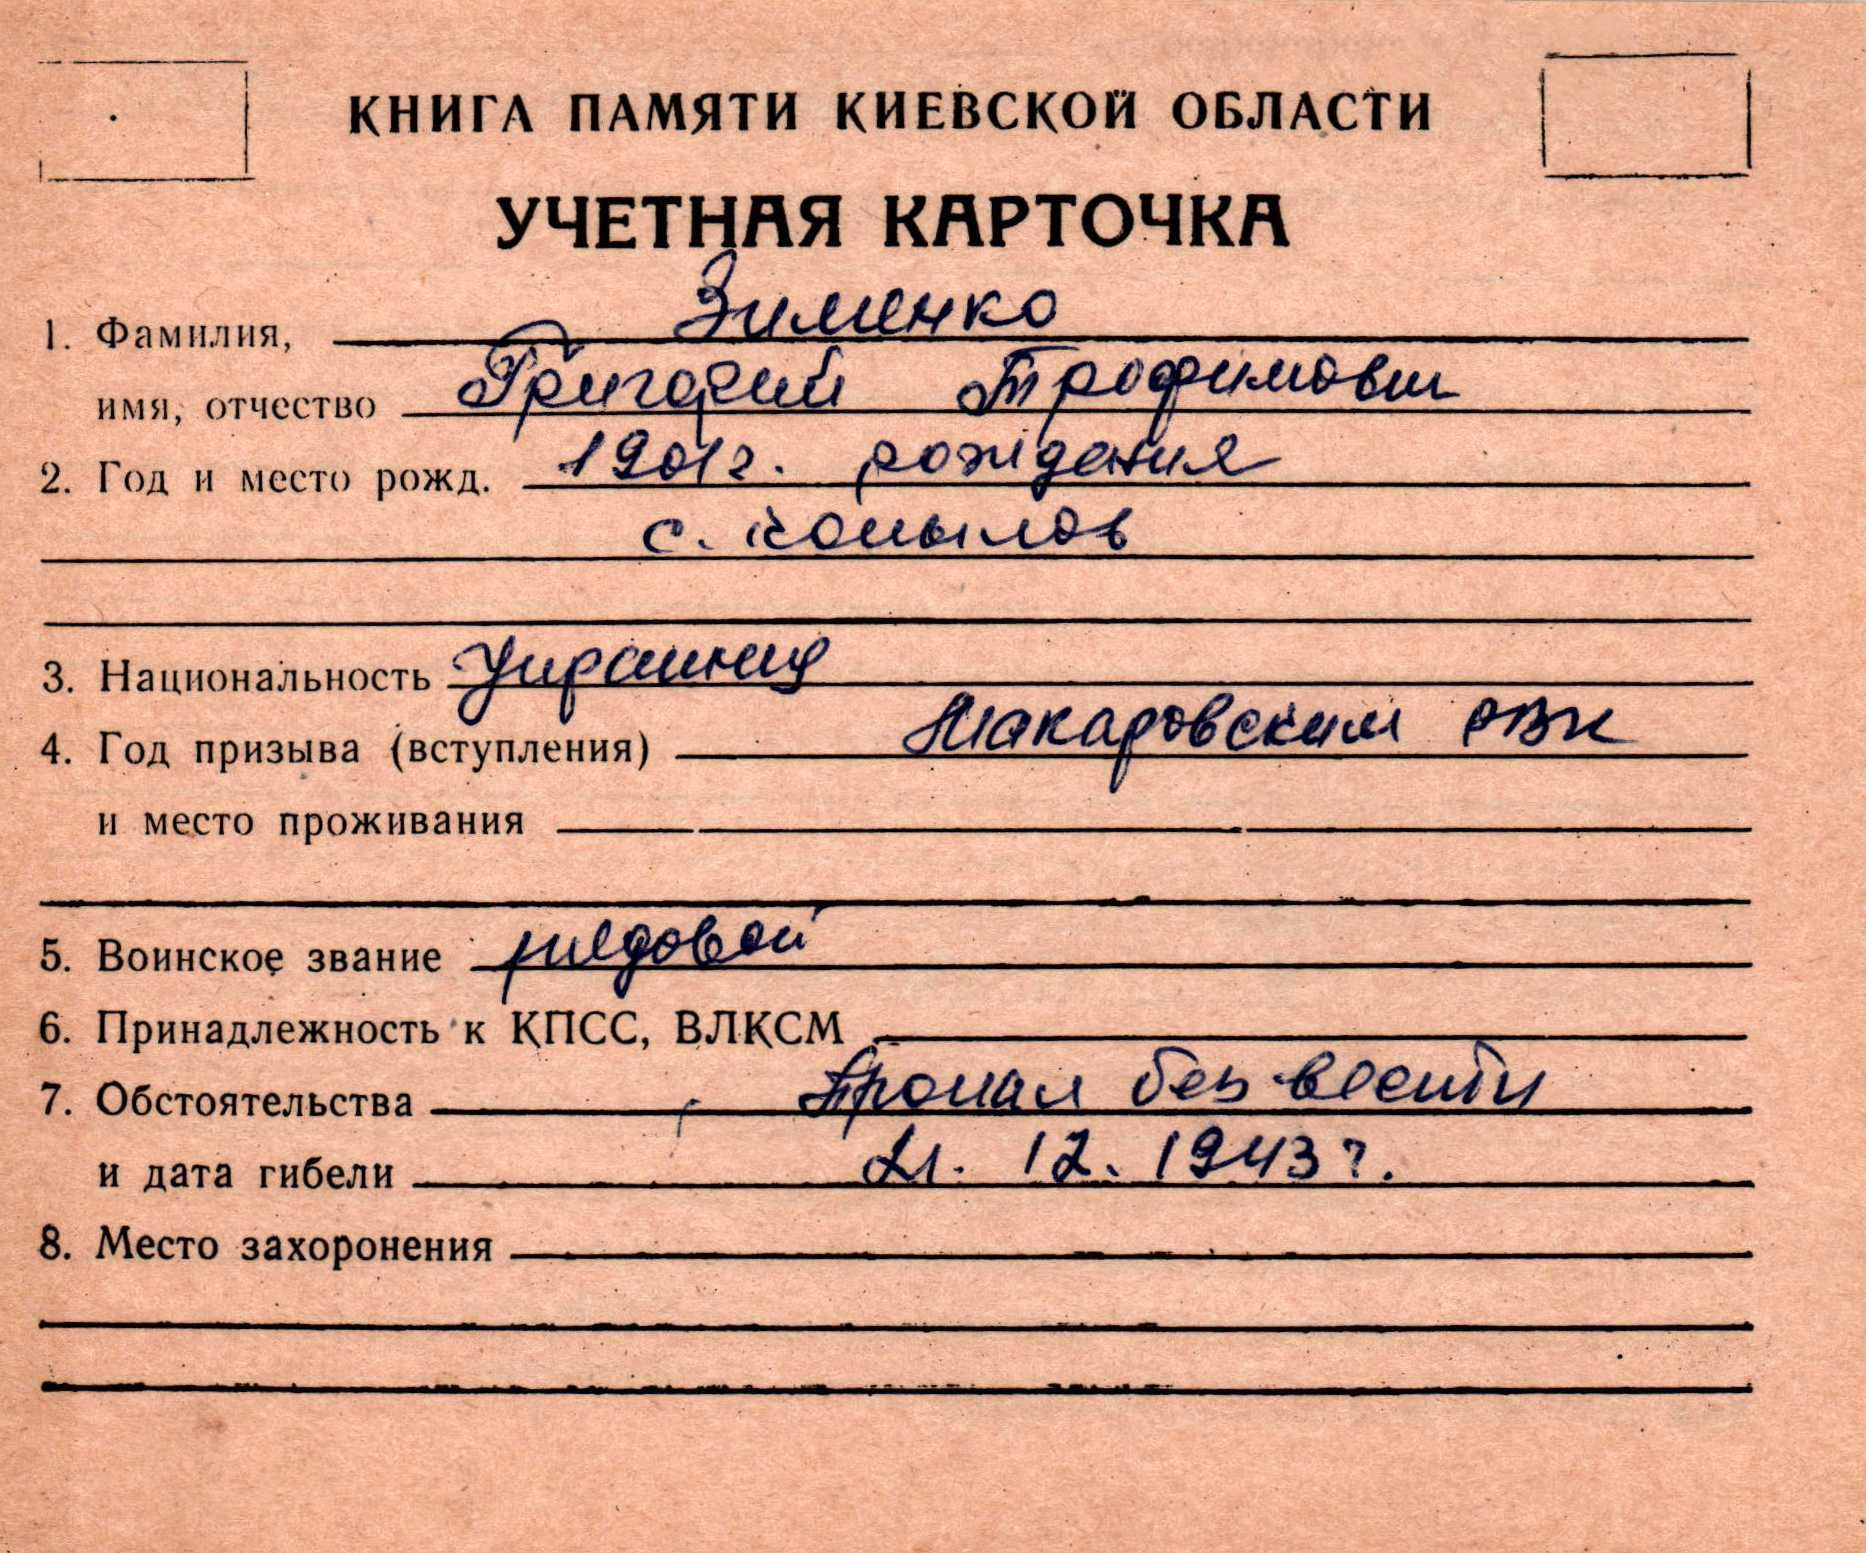 КНИГА ПАМЯТИ КИЕВСКОЙ ОБЛАСТИ
УЧЕТНАЯ КАРТОЧКА
1. Фамилия, Зименко
имя, отчество Григорий Трофимович
2. Год и место рожд. 1901г. рождения
с. Копылов
3. Национальность Украинец
4. Год призыва (вступления) Макаровским РВК
и место проживания
5. Воинское звание рядовой
6. Принадлежность к КПСС, ВЛКСМ
7. Обстоятельства Пропал без вести
и дата гибели 21. 12. 1943 г.
8. Место захоронения